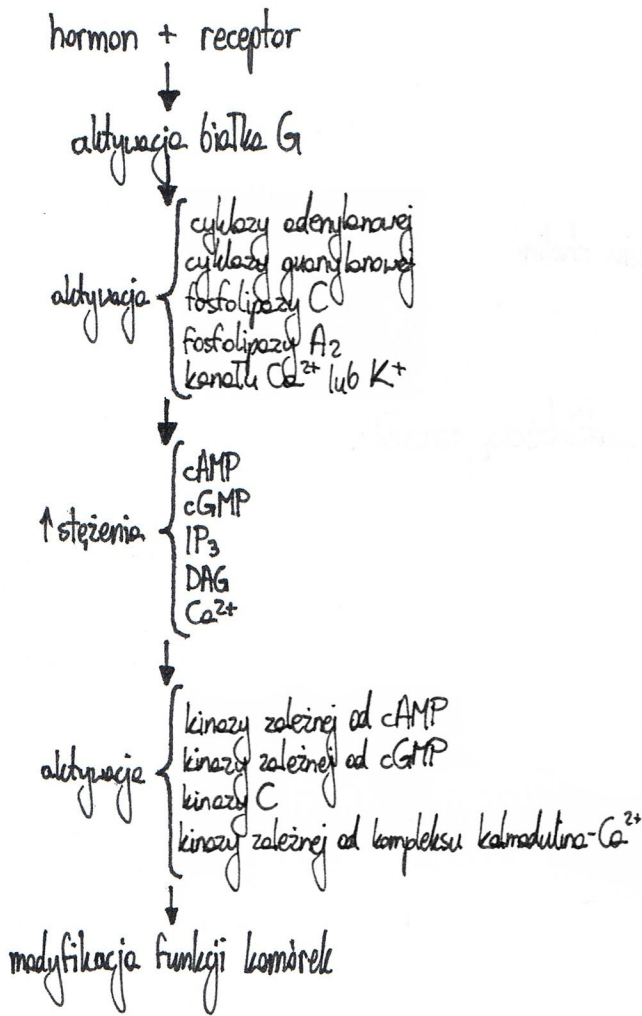 hormon + receptor
aktywacja białka G
cyklazy adenylanowej
cyklazy guanylanowej
aktywacja
fosfolipazy C
fosfolipazy A₂
kanału Ca²⁺ lub K⁺
cAMP
cGMP
↑ stężenia
IP₃
DAG
Ca²⁺
kinazy zależnej od cAMP
kinazy zależnej od cGMP
aktywacja
kinazy C
kinazy zależnej od kompleksu kalmodulina-Ca²⁺
modyfikacja funkcji komórek